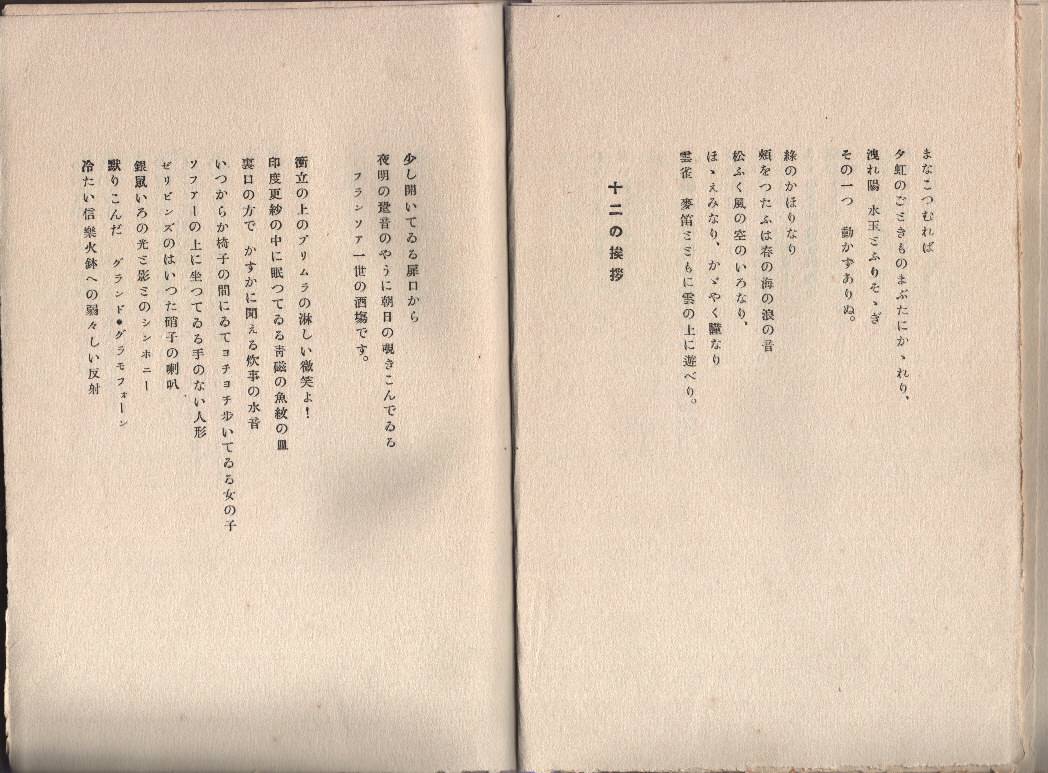 まなこつむれば
夕虹のごときものまぶたにかゝれり、
洩れ陽 水玉とふりそゝぎ
その一つ 動かずありぬ。
綠のかほりなり
頰をつたふは春の海の浪の音
松ふく風の空のいろなり、
ほゝえみなり、かゞやく瞳なり
雲雀 麥笛とともに雲の上に遊べり。
十二の挨拶
少し開いてゐる扉口から
夜明の跫音のやうに朝日の覗きこんでゐる
フランソア一世の酒塲です。
衝立の上のプリムラの淋しい微笑よ!
印度更紗の中に眠つてゐる靑磁の魚紋の皿
裏口の方で かすかに聞える炊事の水音
いつからか椅子の間にゐてヨチヨチ歩いてゐる女の子
ソファーの上に坐つてゐる手のない人形
ゼリビンズのはいつた硝子の喇叭
銀鼠いろの光と影とのシンホニー
默りこんだ グランド・グラモフォーン
冷たい信樂火鉢への弱々しい反射